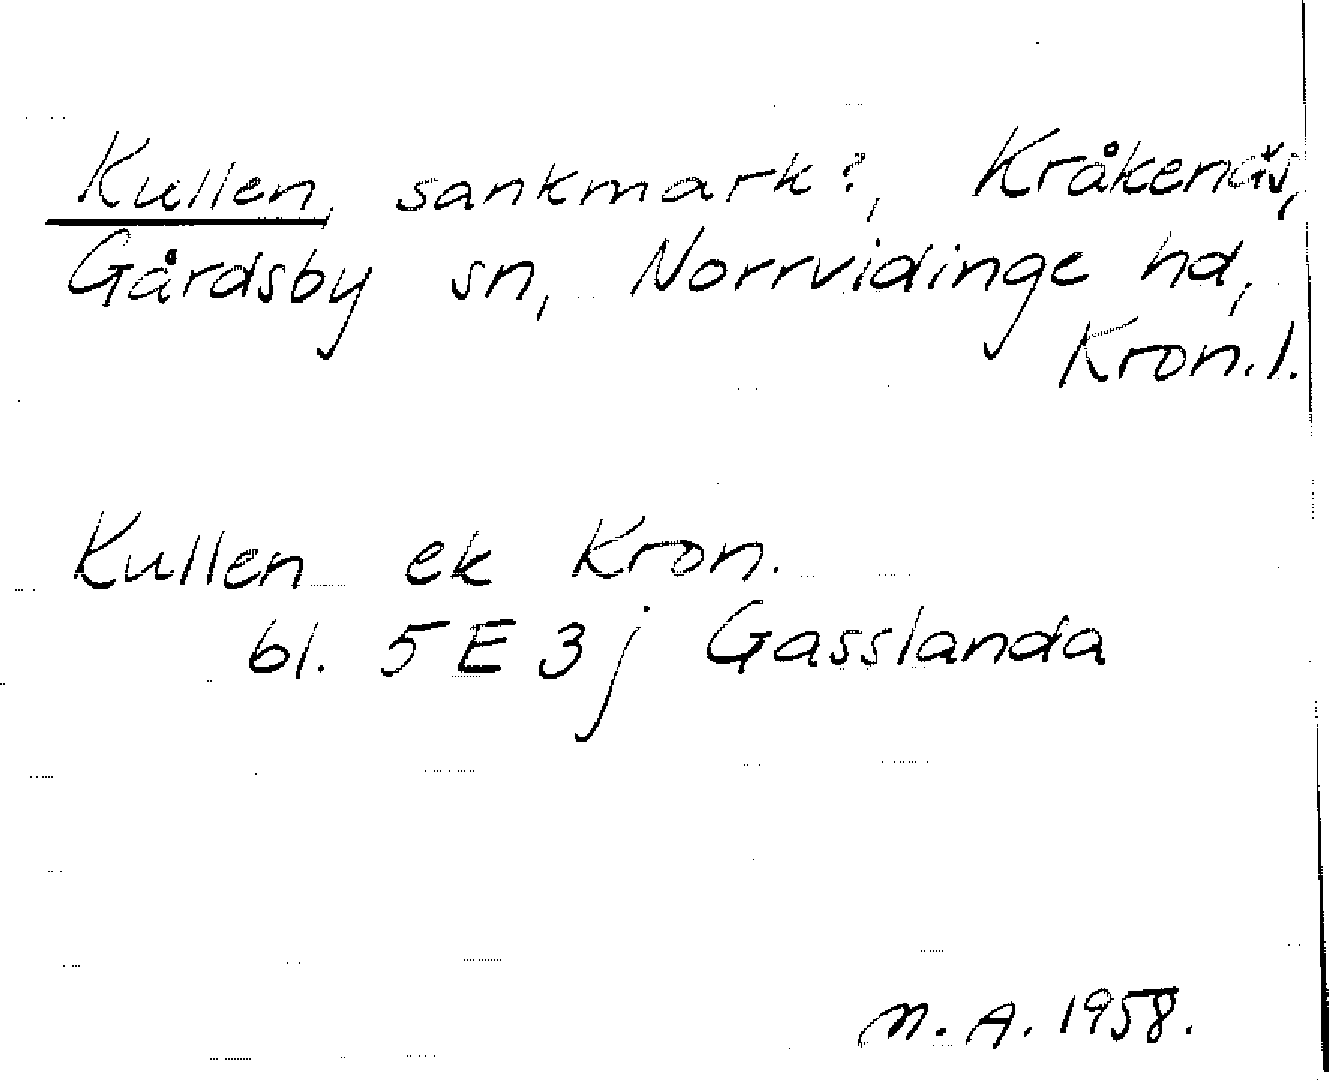 Kullen, sankmark?, Kråkenäs,
Gårdsby sn, Norrvidinge hd,
Kron.l.
Kullen ek Kron.
bl. 5E3j Gasslanda
M.A. 1958.